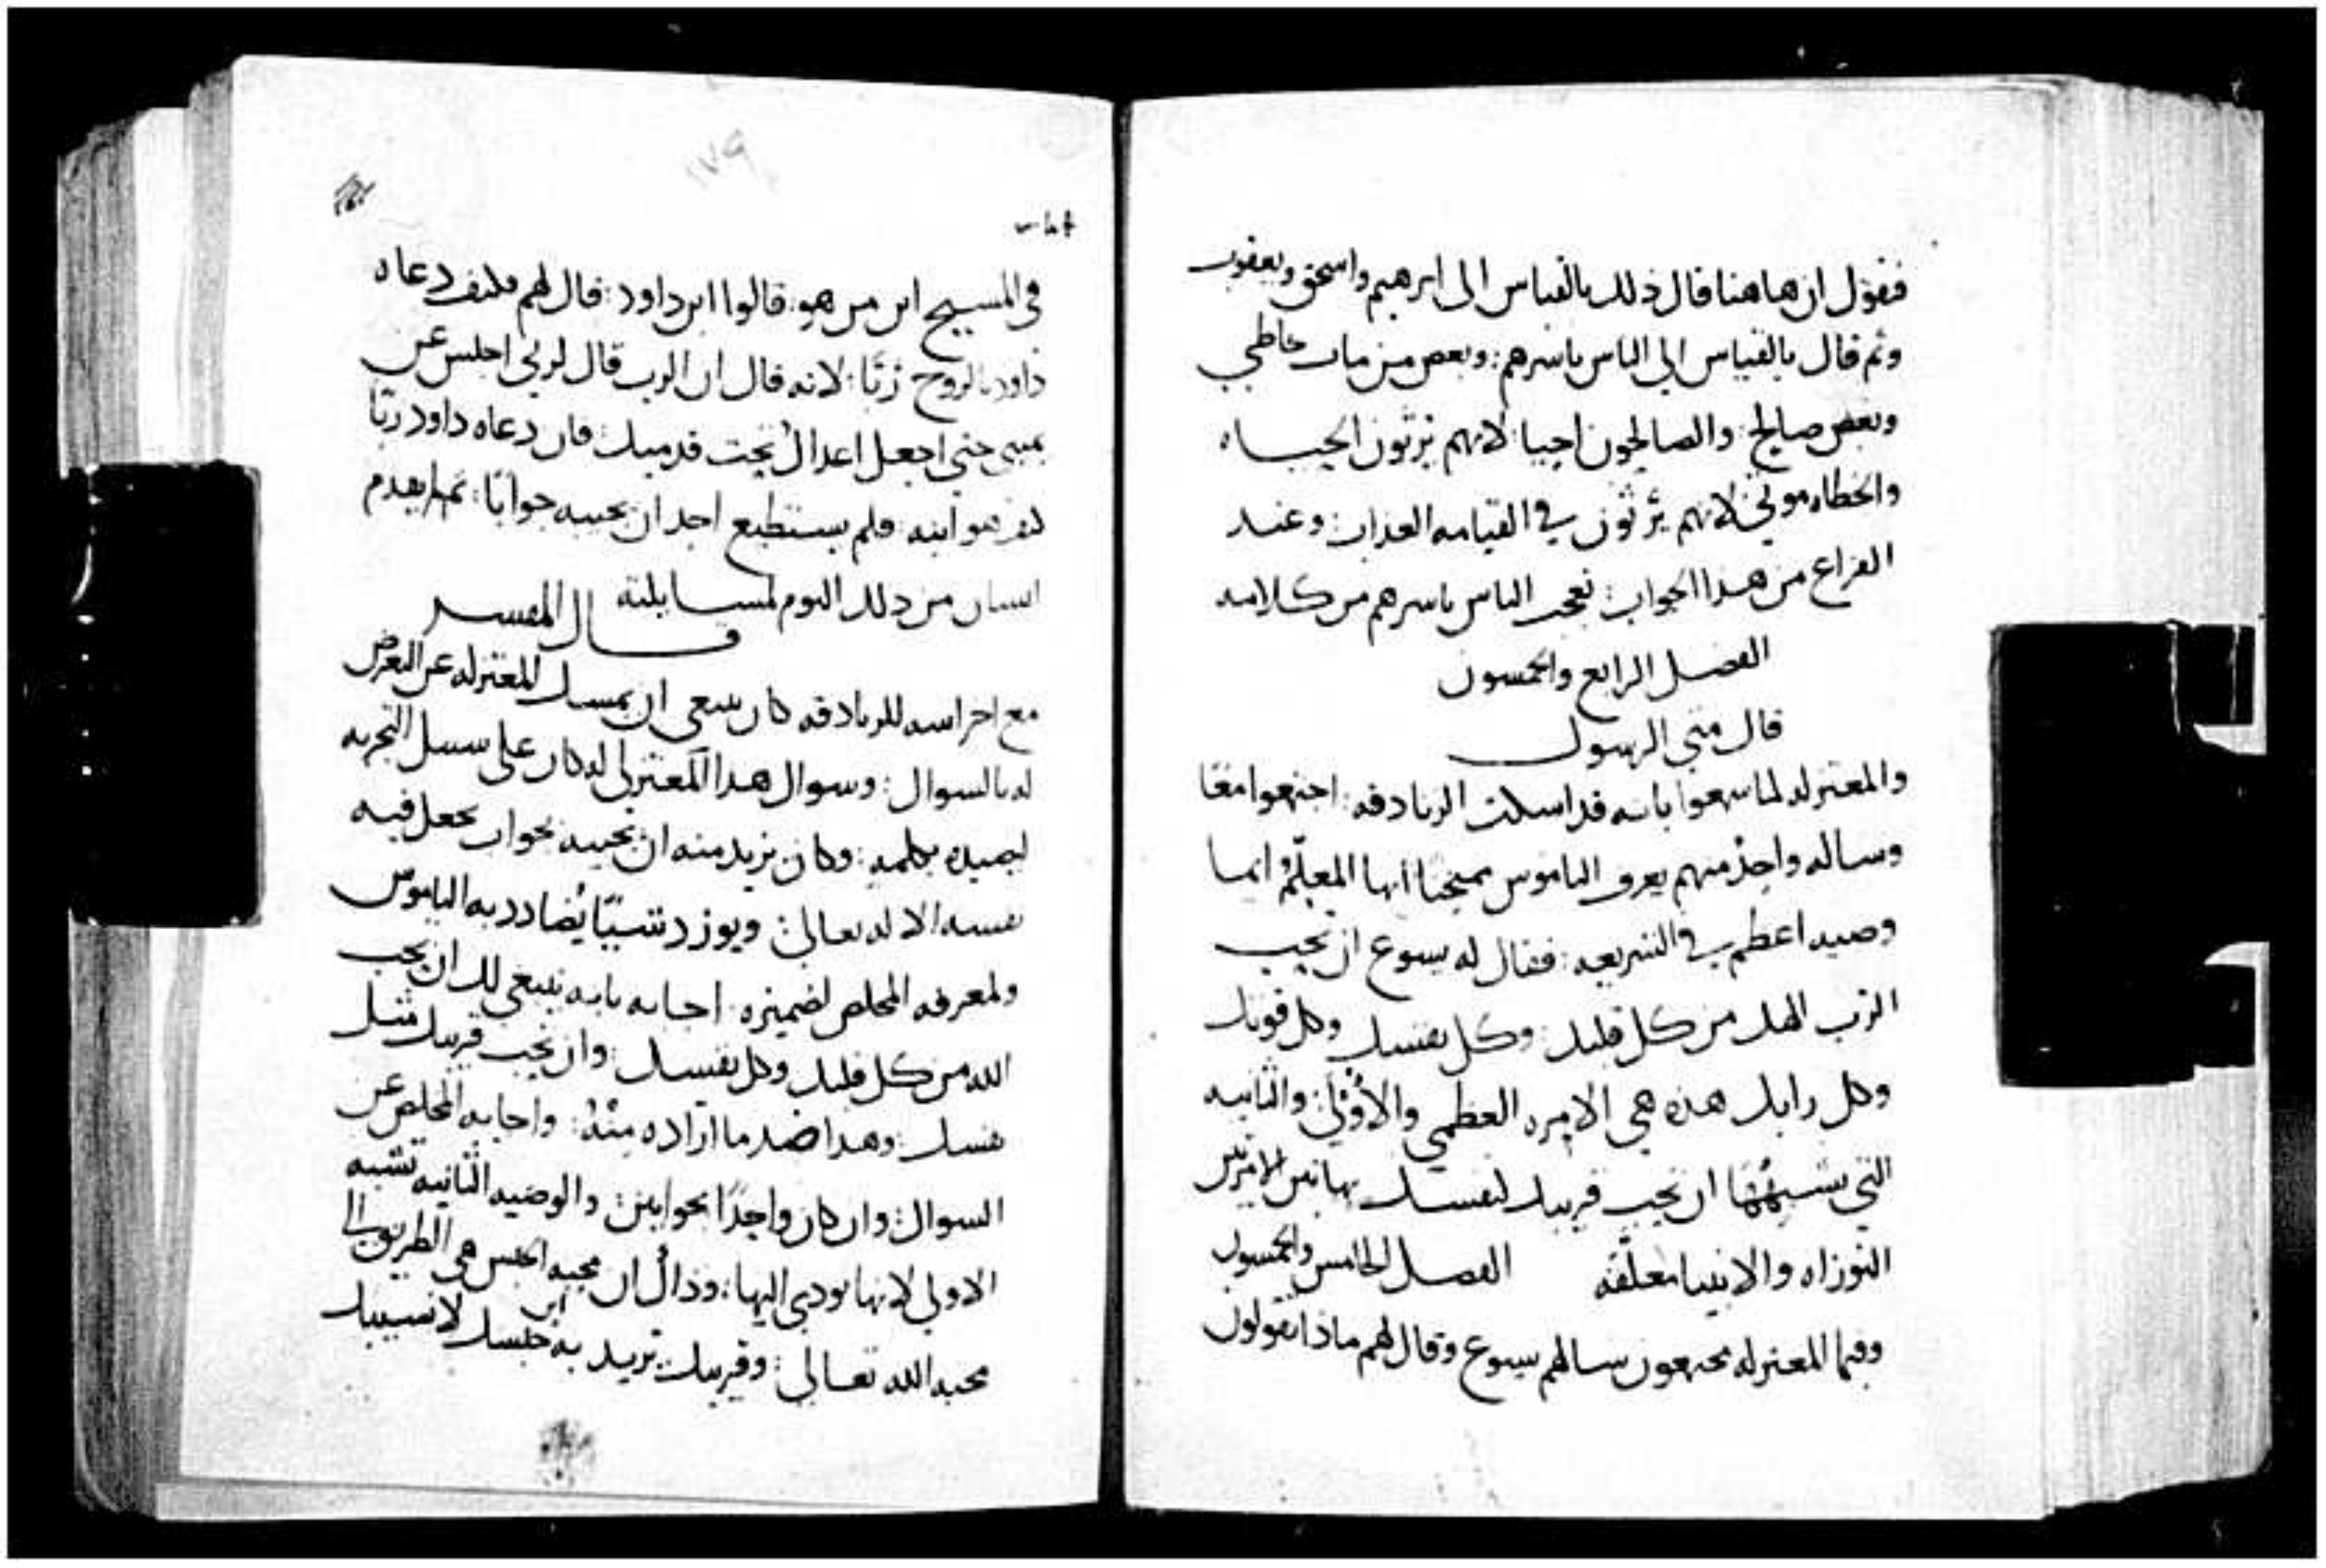 فنقول ان هاهنا قال ذلك بالقياس الى ابرهيم واسحق ويعقوب
وثم قال بالقياس الي الناس باسرهم: وبعض من مات خاطي
وبعض صالح: والصالحون احيا لانهم يرثون الحيــاه
والخطاه موتي لانهم يرثون في القيامه العذاب: وعند
الفراغ من هذا الجواب: تعجب الناس باسرهم من كلامه
الفصل الرابع والخمسون
قال متي الرسول
والمعتزله لما سمعوا بانه قد اسكت الزنادقه: اجتمعوا معًا
وساله واحدٌ منهم يعرف الناموس ممتحنًا ايها المعلّمُ ايما
وصيه اعظم في الشريعه: فقال له يسوع ان تحب
الرب الهك من كل قلبك: وكل نفسك وكل قوتك
وكل رايك هذه هي الامره العظمي والاولي: والثانيه
التي تشبهها ان تحب قريبك كنفسك بهاتين الامرتين
التوراه والانبيا معلقه    الفصل الخامس والخمسون
وفيما المعتزله مجتمعون سالهم يسوع وقال لهم ماذا تقولون
في المسيح ابن من هو: قالوا ابن داود: قال لهم فكيف دعاه
داود بالروح ربًا: لانه قال ان الرب قال لربي اجلس عن
يميني حتي اجعل اعداك تحت قدميك: فان دعاه داود ربًا
كيف هو ابنه: فلم يستطيع احد ان يجيبه جوابًا: ثم لم يقدم
انسان من ذلك اليوم لمسايلته    قــال المفسر
مع اخراسه للزنادقه كان ينبغي ان يمسك المعتزله عن التعرض
له بالسوال: وسوال هذا المعتزلي له كان علي سبيل التجربه
ليصيده بكلمه: وكان يريد منه ان يجيبه بجواب يجعل فيه
نفسه الاله تعالي: ويورد شيئًا يُضادد به الناموس
ولمعرفه المخلص لضميره: اجابه بانه ينبغي لك ان تحب
الله من كل قلبك وكل نفسك: وان تحب قريبك مثل
نفسك: وهذا ضد ما اراده منهُ: واجابه المخلص عن
السوال: وان كان واحدًا بجوابين: والوصيه الثانيه تشبه
الاولي لانها تودي اليها: وذاك ان محبه الجنس هي الطريق الي
محبه الله تعالي: وقريبك يريد به ابن جنسك لا نسيبك